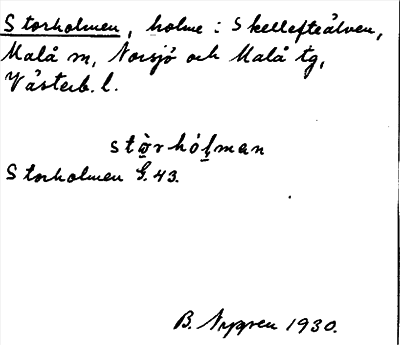 Storholmen, holme i Skellefteälven,
Malå sn, Norsjö och Malå tg,
Västerb. l.
stòrhólman
Storholmen G. 43.
B. Nygren 1930.